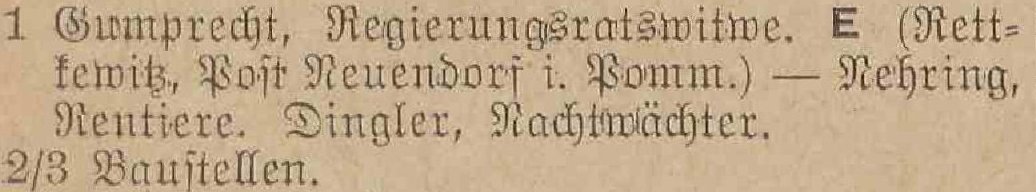 1 Gumprecht, Regierungsratswitwe. E (Rett=
kewitz, Post Neuendorf i. Pomm.) — Nehring,
Rentiere. Dingler, Nachtwächter.
2/3 Baustellen.